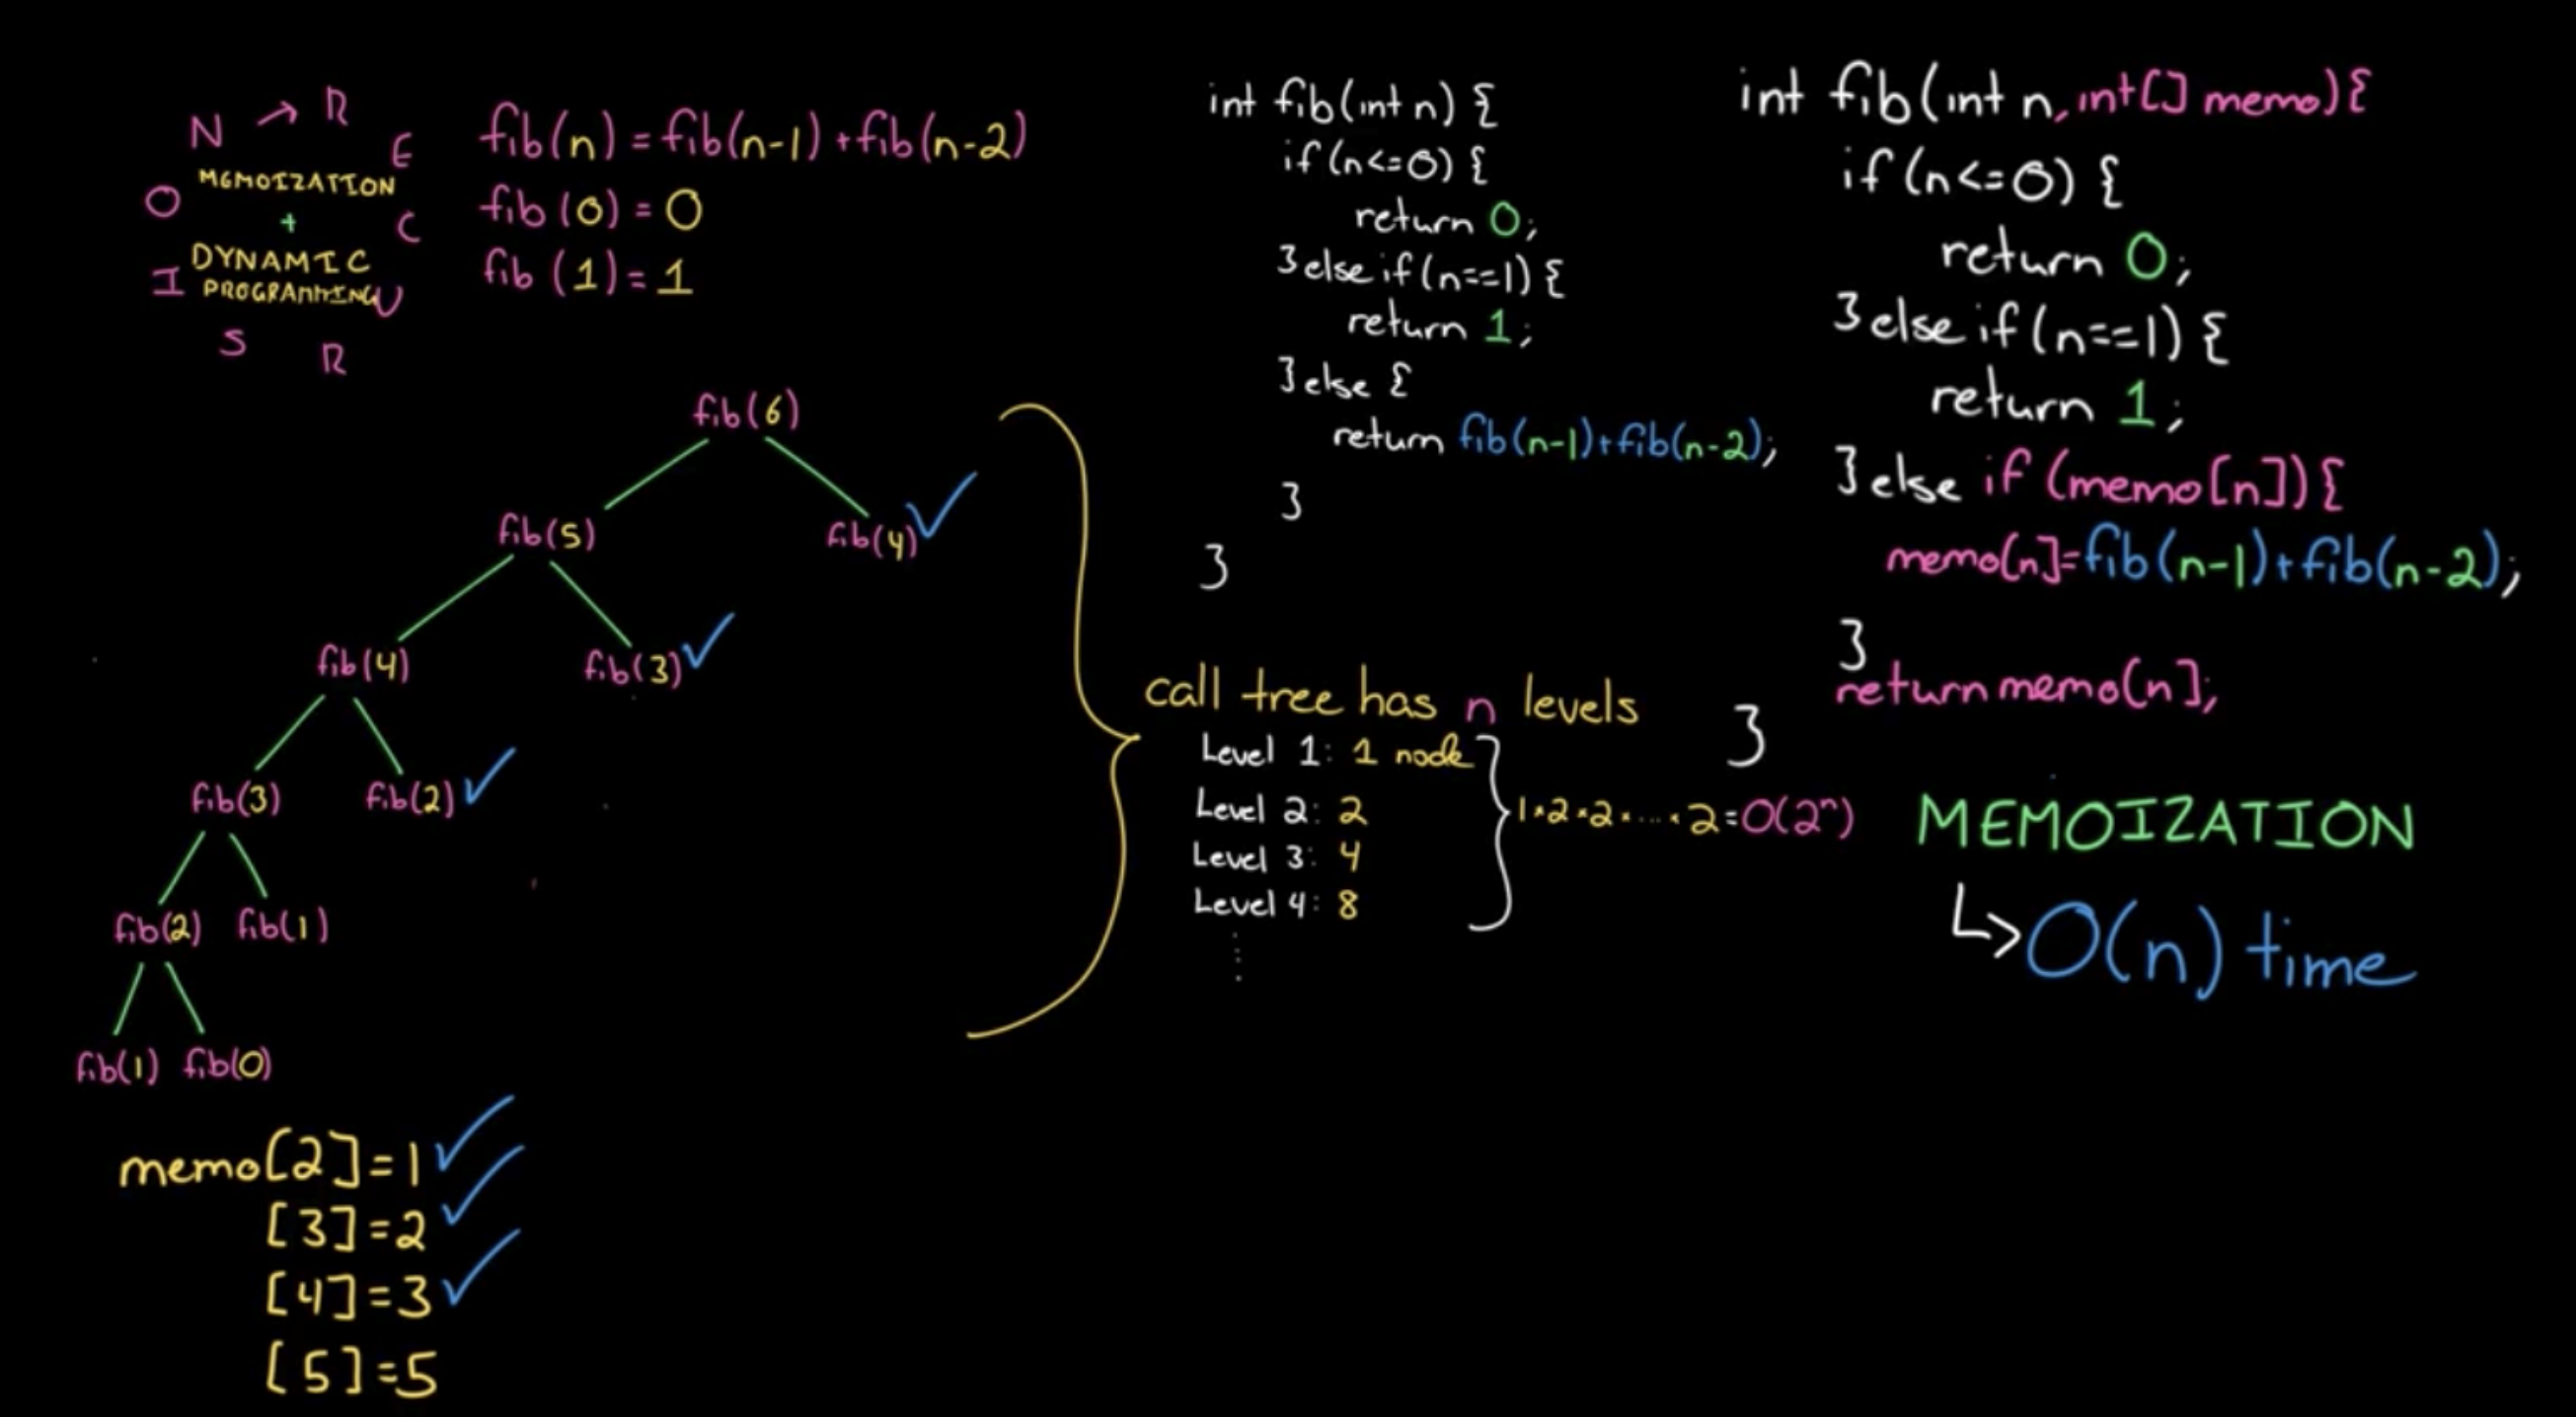 RECURSION
MEMOIZATION
+
DYNAMIC
PROGRAMMING
fib(n) = fib(n-1) + fib(n-2)
fib(0) = 0
fib(1) = 1
fib(6)
fib(5) fib(4) ✓
fib(4) fib(3) ✓
fib(3) fib(2) ✓
fib(2) fib(1)
fib(1) fib(0)
memo[2]=1 ✓
[3]=2 ✓
[4]=3 ✓
[5]=5
int fib(int n) {
if(n<=0) {
return 0;
}else if(n==1) {
return 1;
}else {
return fib(n-1)+fib(n-2);
}
}
call tree has n levels
Level 1: 1 node
Level 2: 2
Level 3: 4
Level 4: 8
1*2*2*...*2=O(2ⁿ)
int fib(int n, int[] memo){
if(n<=0) {
return 0;
}else if(n==1) {
return 1;
}else if (memo[n]){
memo[n]=fib(n-1)+fib(n-2);
}
return memo[n];
}
MEMOIZATION
↳O(n) time